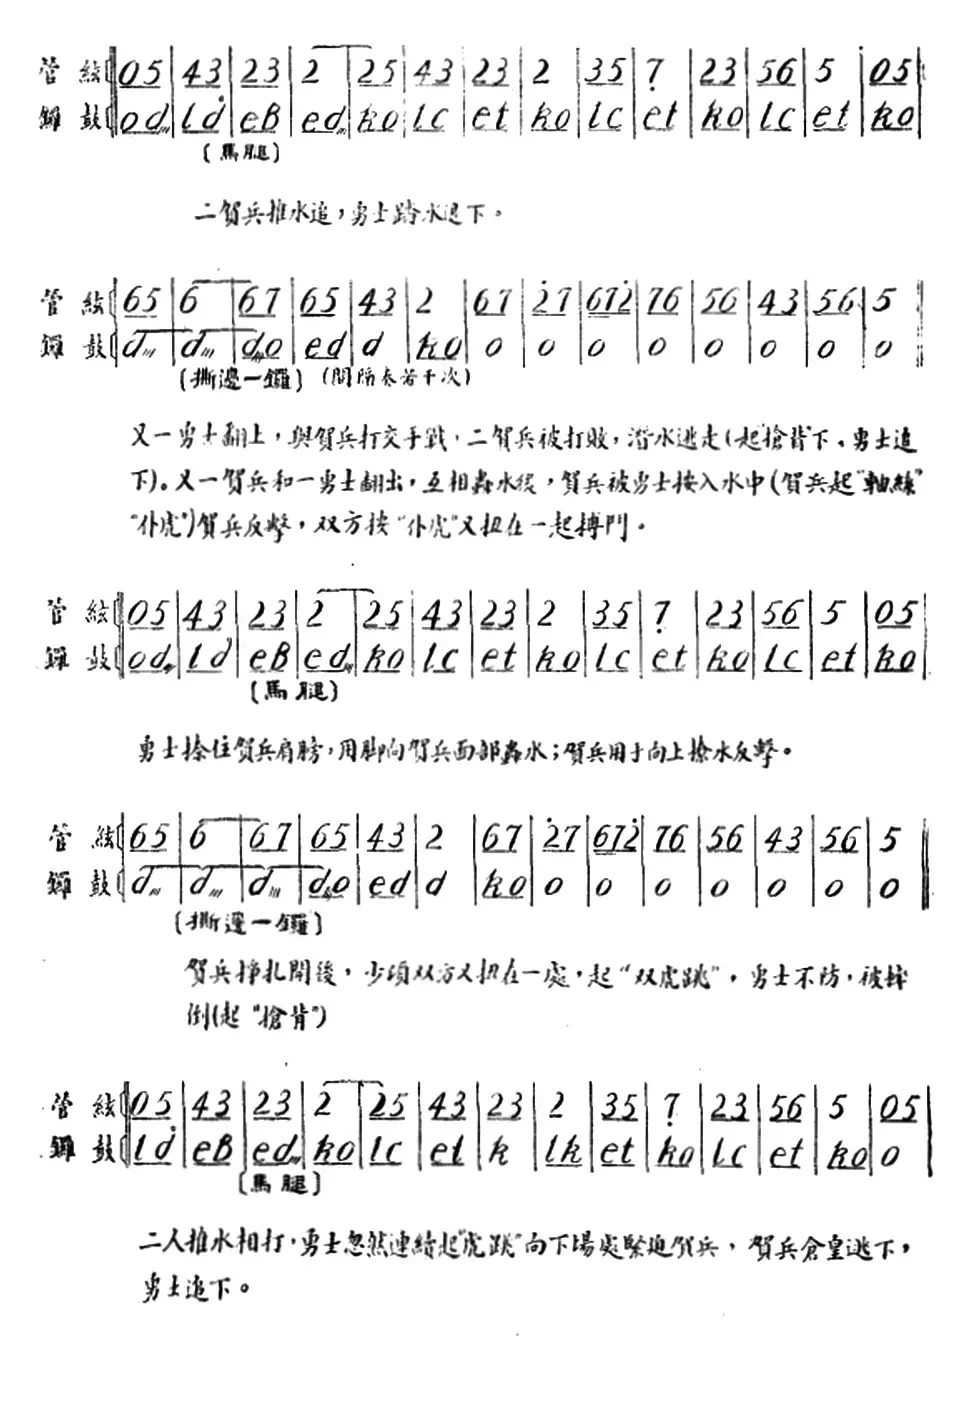 管 絃 05 | 43 | 23 | 2 | 25 | 43 | 23 | 2 | 35 | 7̣ | 23 | 56 | 5 | 05
鑼 鼓 od | ld | eB | ed | ko | lc | et | ko | lc | et | ko | lc | et | ko
(馬腿)
二賀兵推水追，勇士踏水退下。
管 絃 65 | 6 | 67 | 65 | 43 | 2 | 67 | 2̇7 | 672̇ | 76 | 56 | 43 | 56 | 5
鑼 鼓 d | d | do | ed | d | ko | o | o | o | o | o | o | o | o
(撕邊一鑼) (間隔奏若干次)
又一勇士翻上，與賀兵打交手戰，二賀兵被打敗，潛水逃走(起"搶背"下，勇士追
下)。又一賀兵和一勇士翻出，互相轟水後，賀兵被勇士按入水中(賀兵起"軸絲"
"仆虎")賀兵反擊，双方按"仆虎"又扭在一起搏鬥。
管 絃 05 | 43 | 23 | 2 | 25 | 43 | 23 | 2 | 35 | 7̣ | 23 | 56 | 5 | 05
鑼 鼓 od | ld | eB | ed | ko | lc | et | ko | lc | et | ko | lc | et | ko
(馬腿)
勇士拴住賀兵肩膀，用脚向賀兵面部轟水；賀兵用手向上撩水反擊。
管 絃 65 | 6 | 67 | 65 | 43 | 2 | 67 | 2̇7 | 672̇ | 76 | 56 | 43 | 56 | 5
鑼 鼓 d | d | d | do | ed | d | ko | o | o | o | o | o | o | o
(撕邊一鑼)
賀兵掙扎開後，少頃双方又扭在一處，起"双虎跳"，勇士不防，被摔
倒(起"搶背")
管 絃 05 | 43 | 23 | 2 | 25 | 43 | 23 | 2 | 35 | 7̣ | 23 | 56 | 5 | 05
鑼 鼓 ld | eB | ed | ko | lc | et | k | lk | et | ko | lc | et | ko | o
(馬腿)
二人推水相打，勇士忽然連續起"虎跳"向下場處緊追賀兵，賀兵倉皇逃下，
勇士追下。